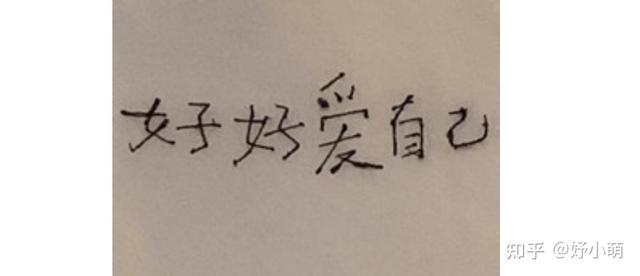 好好爱自己
知乎 @妤小萌